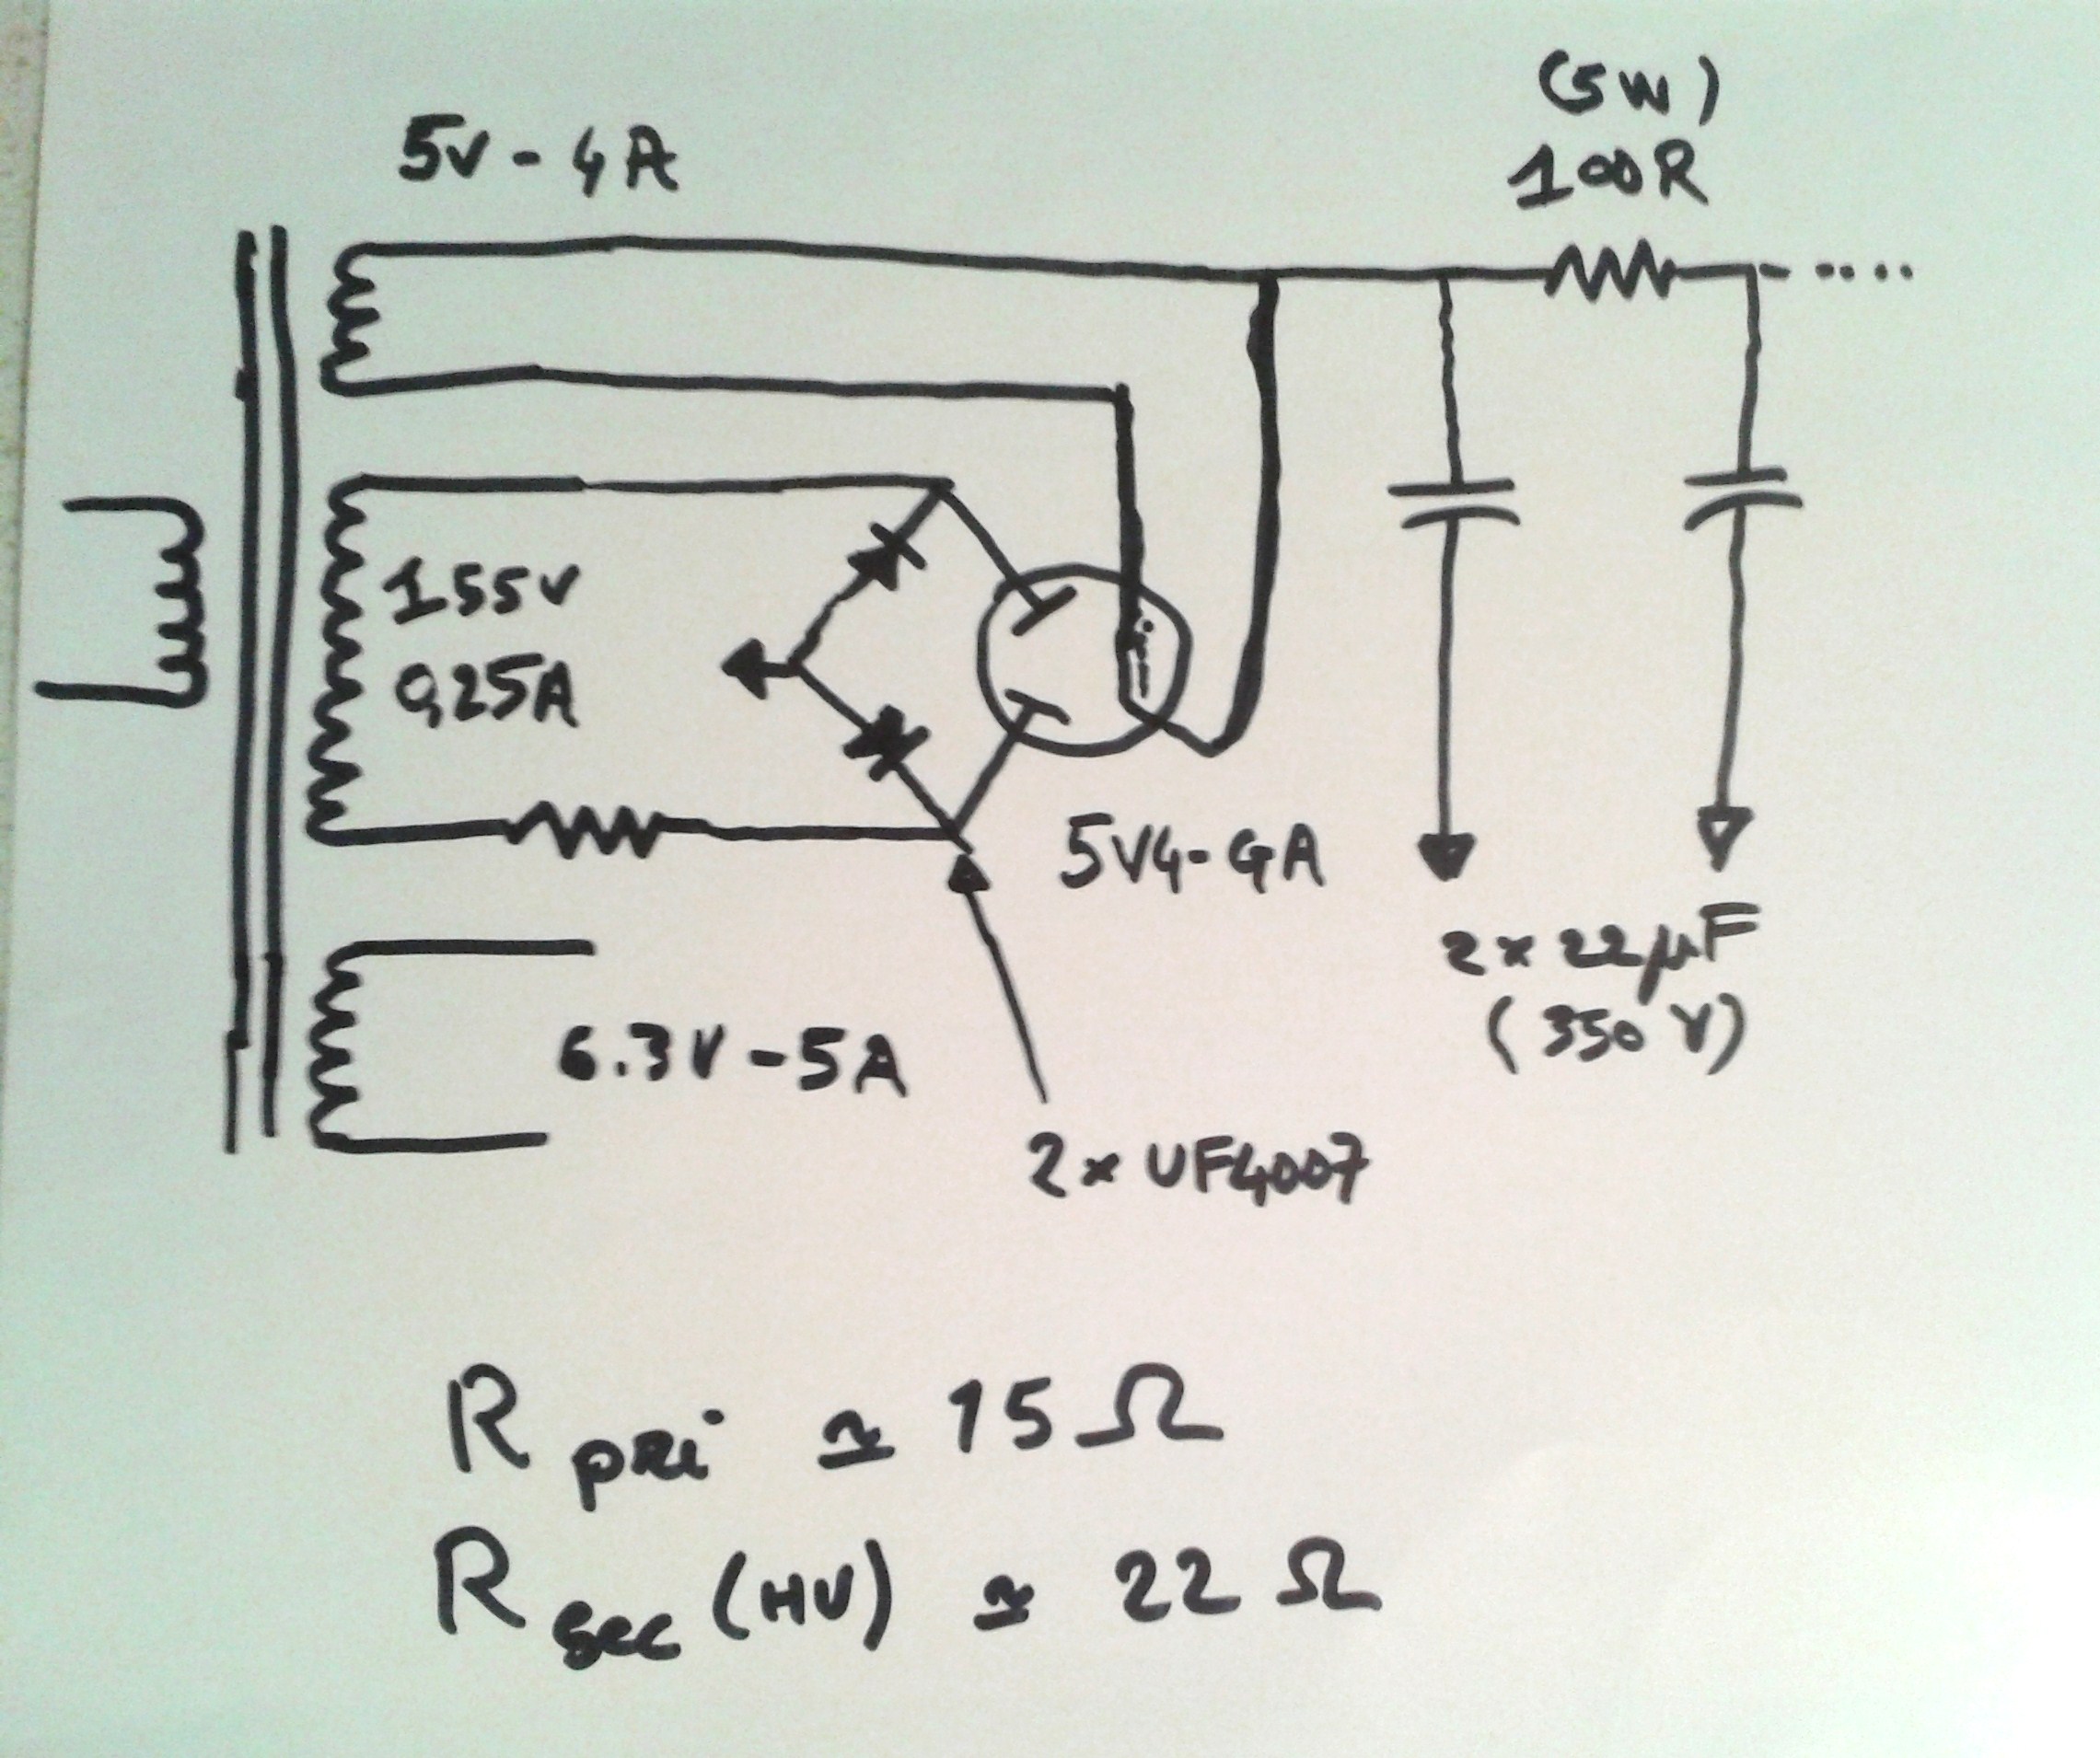 (5W)
100R
5V - 4A
155V
0,25A
5V4-GA
2 x 22µF
(350V)
6.3V - 5A
2x UF4007
R pri ≃ 15 Ω
R sec (HV) ≃ 22 Ω